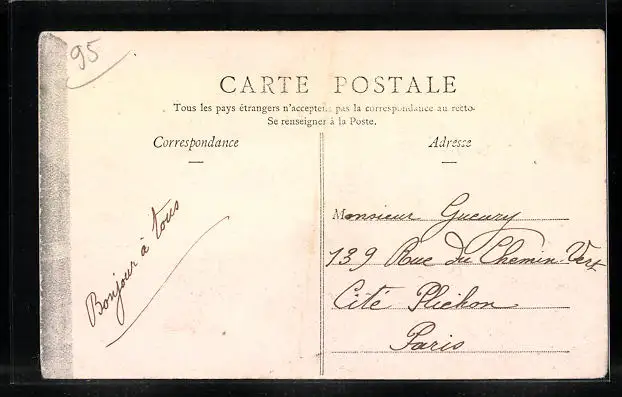 95
CARTE POSTALE
Tous les pays étrangers n'acceptent pas la correspondance au recto.
Se renseigner à la Poste.
Correspondance
Adresse
Bonjour à tous
Monsieur Gueury
139 Rue du Chemin Vert
Cité Plichon
Paris